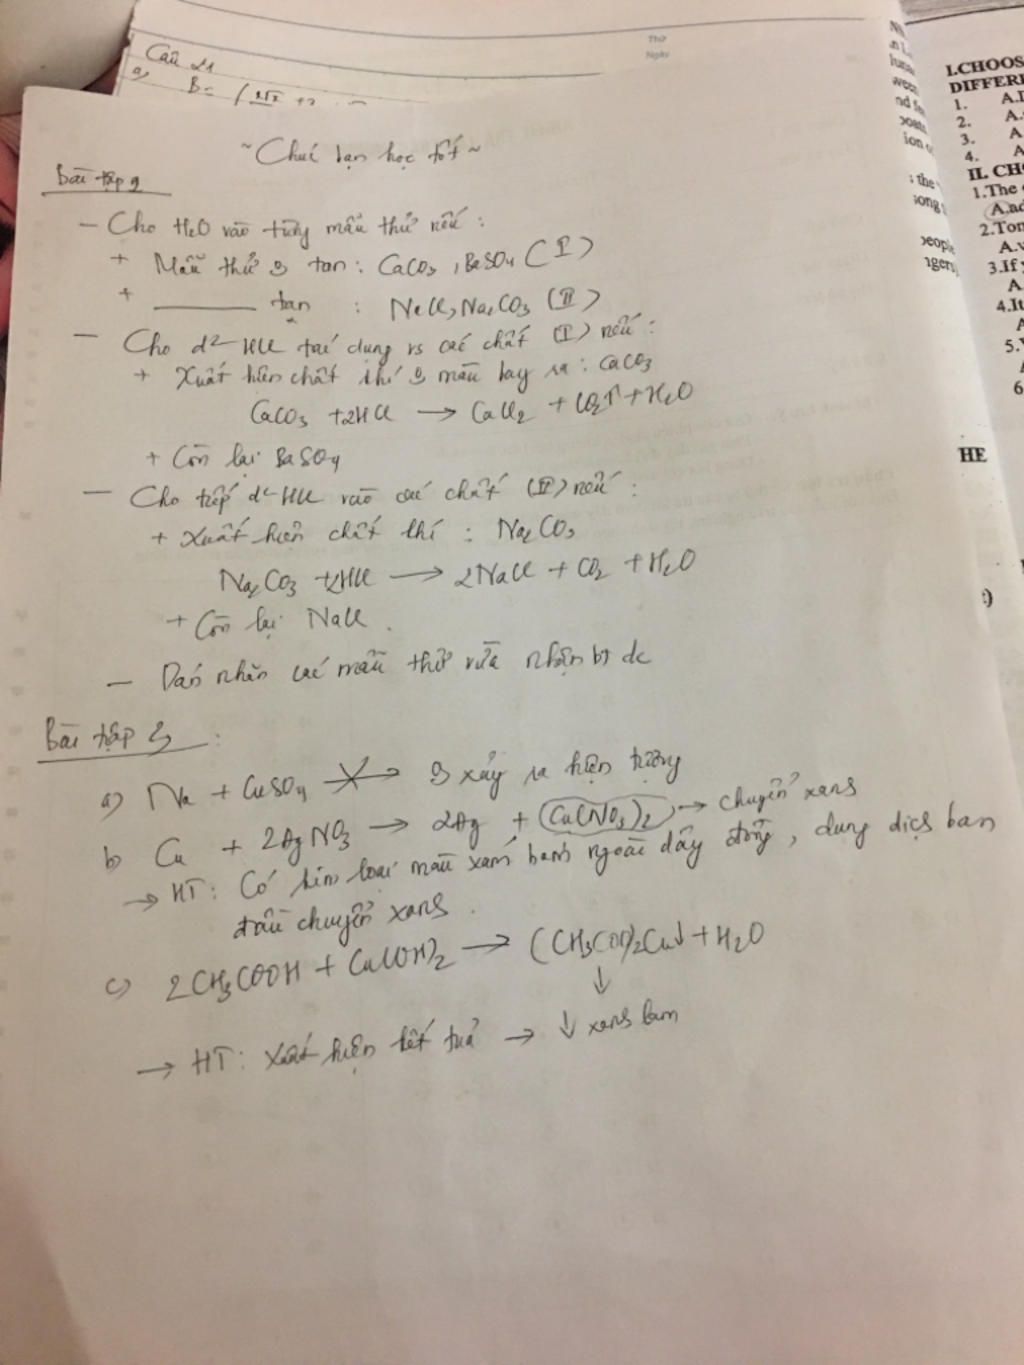 Câu 21
a,
B =
Thứ
Ngày
~ Chúc bạn học tốt ~
Bài tập 9
- Cho H2O vào từng mẫu thử nếu :
+ Mẫu thử ko tan : CaCO3 , BaSO4 ( I )
+ ______ tan : NaCl, Na2CO3 (II)
- Cho d² HCl tác dụng vs các chất (I) nếu :
+ Xuất hiện chất khí ko màu bay ra : CaCO3
CaCO3 + 2HCl → CaCl2 + CO2↑ + H2O
+ Còn lại BaSO4
- Cho tiếp d² HCl vào các chất (II) nếu :
+ Xuất hiện chất khí : Na2CO3
Na2CO3 + 2HCl → 2NaCl + CO2 + H2O
+ Còn lại NaCl .
- Dán nhãn các mẫu thử vừa nhận bt đc
Bài tập 2 :
a) Na + CuSO4 → ko xảy ra hiện tượng
b) Cu + 2AgNO3 → 2Ag + Cu(NO3)2 → chuyển xanh
→ HT : Có kim loại màu xám bám ngoài dây đồng , dung dịch ban
đầu chuyển xanh .
c) 2CH3COOH + Cu(OH)2 → (CH3COO)2Cu↓ + H2O
↓
→ HT : Xuất hiện kết tủa → ↓ xanh lam
I.CHOOS
DIFFERE
1.
2. A.
3. A
4. A
II. CH
1.The
A.ad
2.Tom
A.v
3.If
A.
4.It
A
5.
6
HE